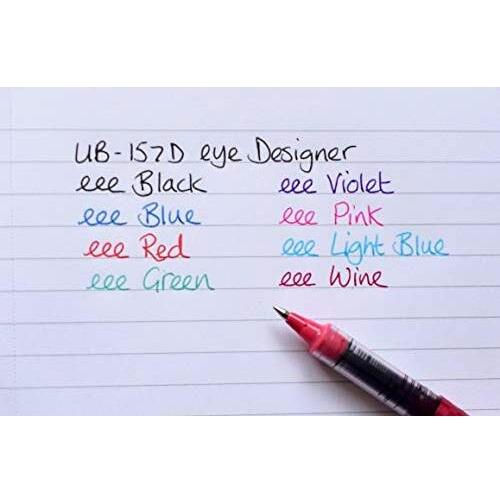 UB-157D eye Designer
eee Black
eee Blue
eee Red
eee Green
eee Violet
eee Pink
eee Light Blue
eee Wine